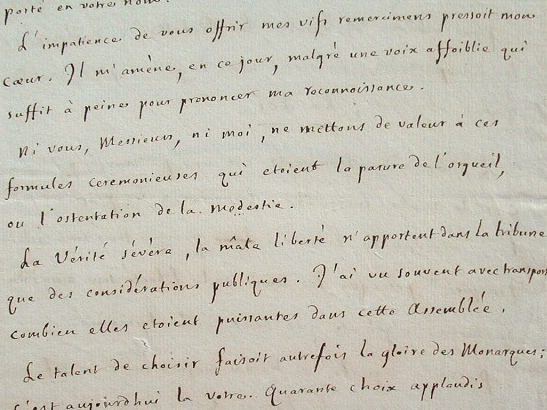 porté en votre nom.
L'impatience de vous offrir mes vifs remercimens pressoit mon
Cœur. Il m'amène, en ce jour, malgré une voix affoiblie qui
suffit à peine pour prononcer ma reconnoissance.
Ni vous, Messieurs, ni moi, ne mettons de valeur à ces
formules ceremonieuses qui etoient la parure de l'orgueil,
ou l'ostentation de la modestie.
La Vérité sévère, la mâle liberté n'apportent dans la tribune
que des considérations publiques. J'ai vu souvent avec transport
combien elles etoient puissantes dans cette Assemblée.
Le talent de choisir faisoit autrefois la gloire des Monarques;
c'est aujourd'hui la votre. Quarante choix applaudis